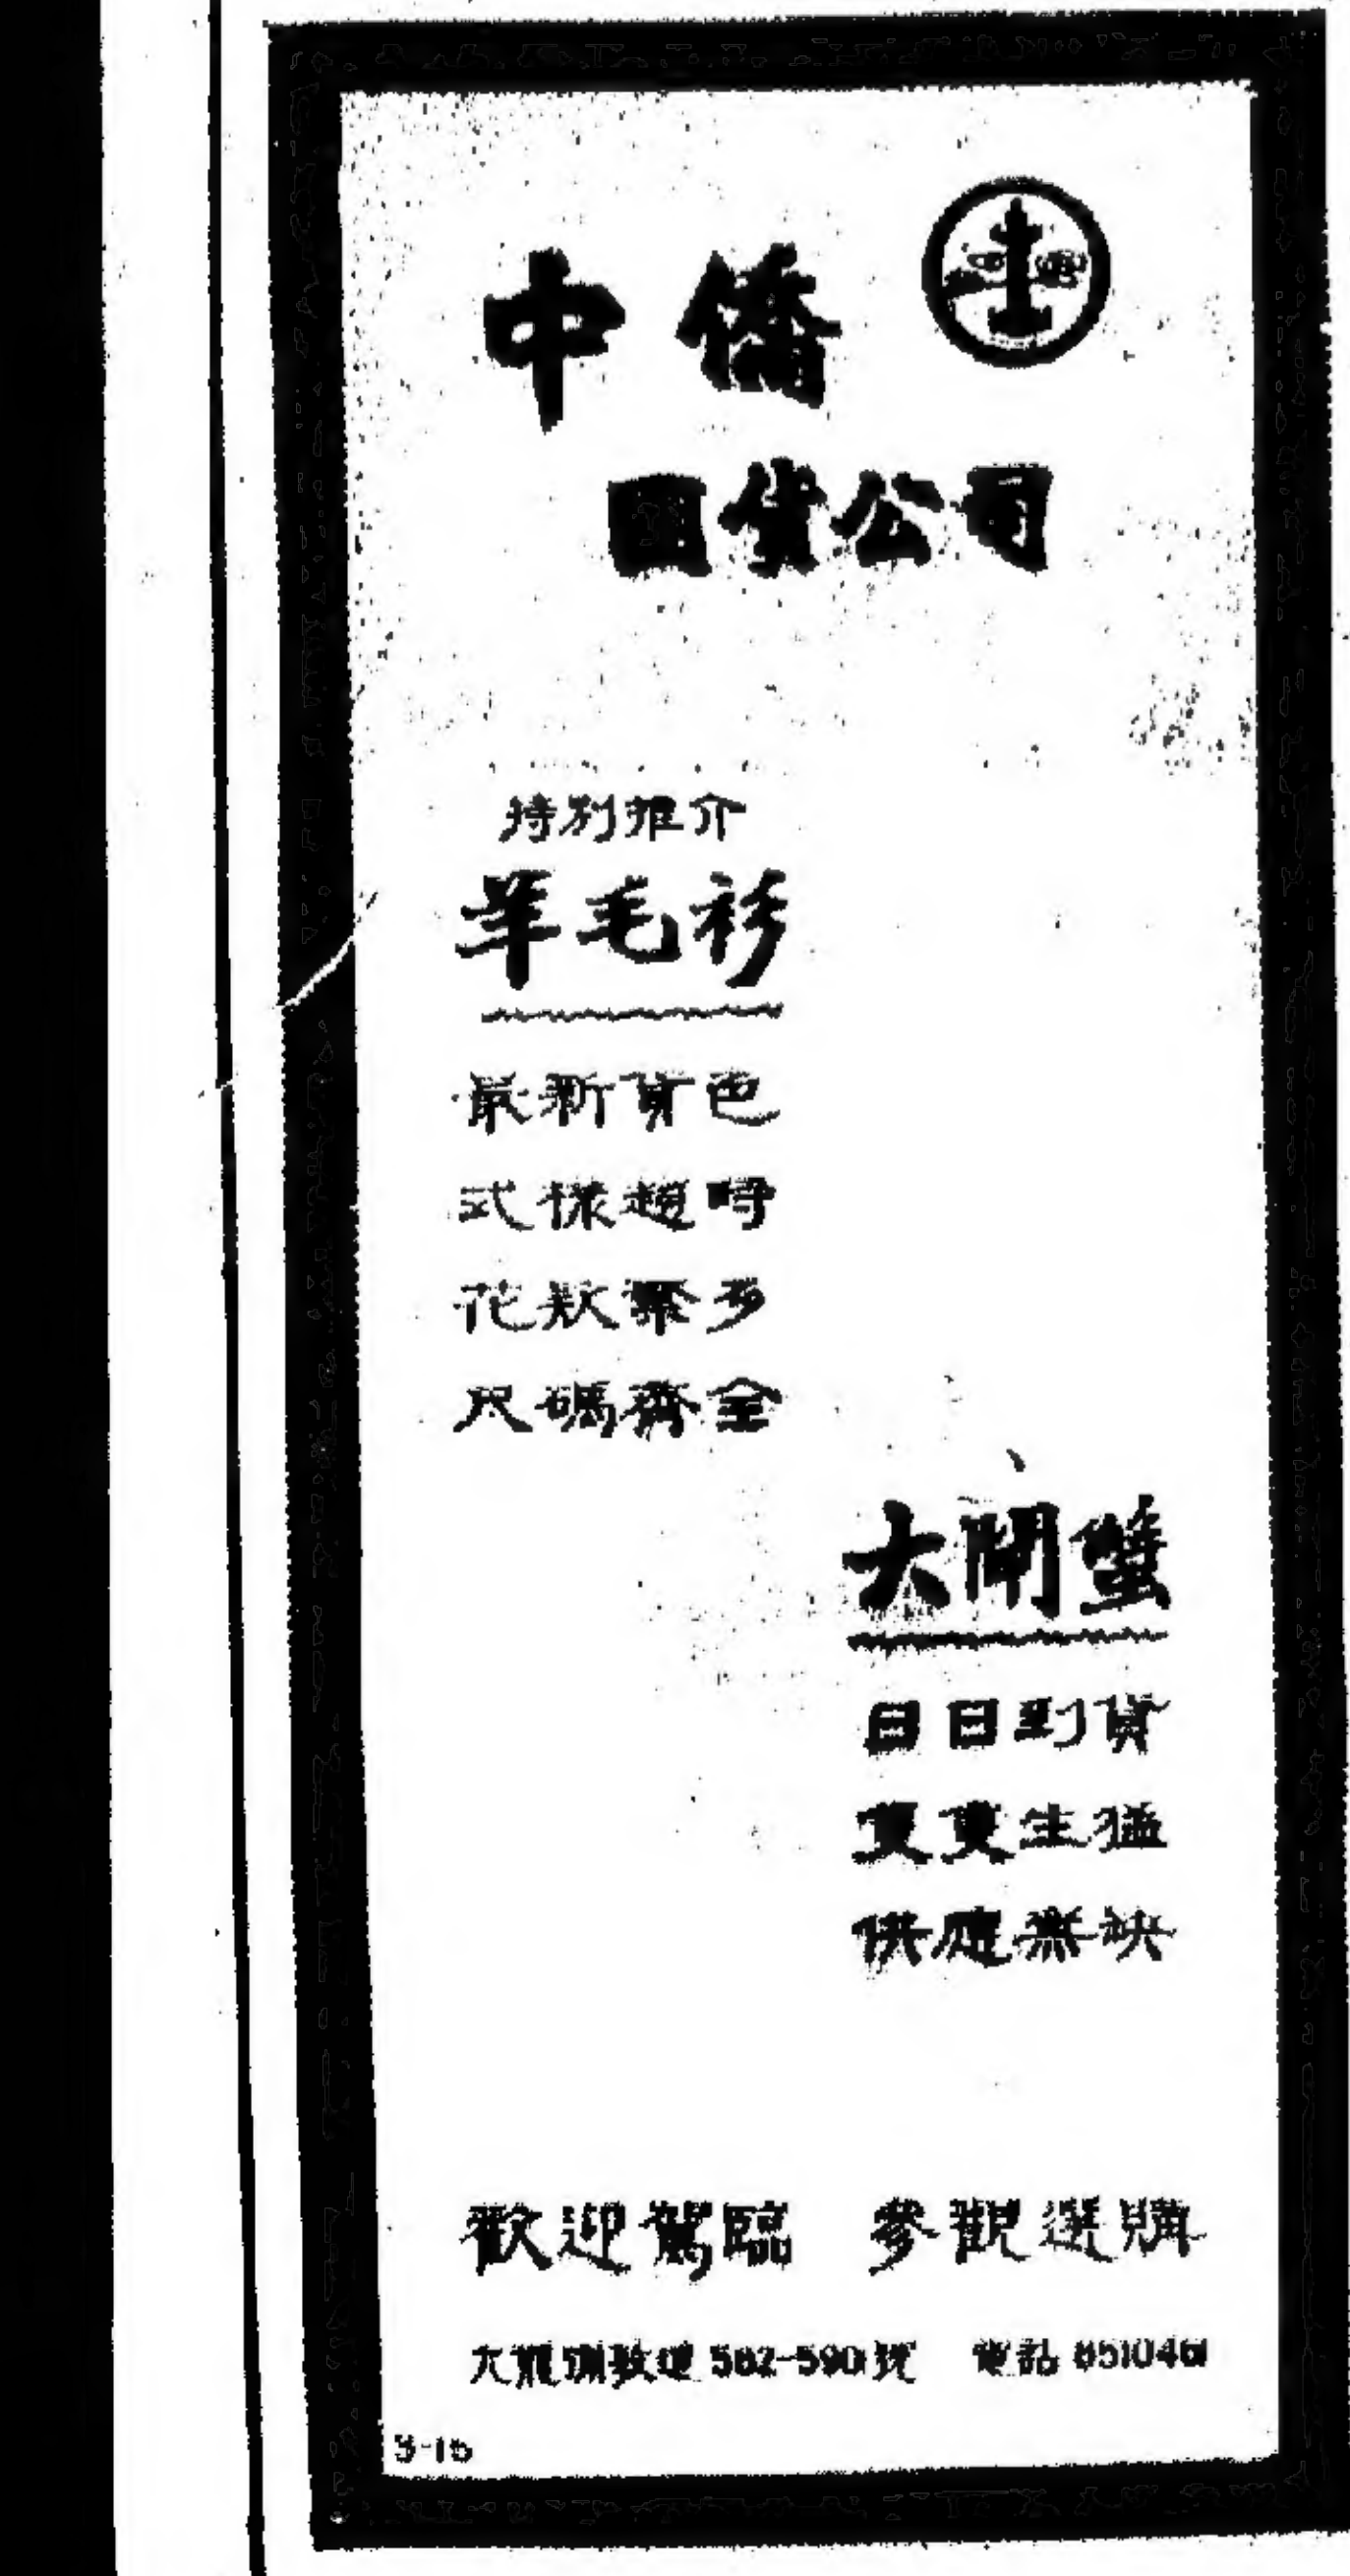 中僑
國貨公司
特別推介
羊毛衫
最新貨色
式樣趨時
花款繁多
尺碼齊全
大閘蟹
日日到貨
隻隻生猛
供應無缺
歡迎駕臨 參觀選購
九龍彌敦道 582-590號 電話 851046